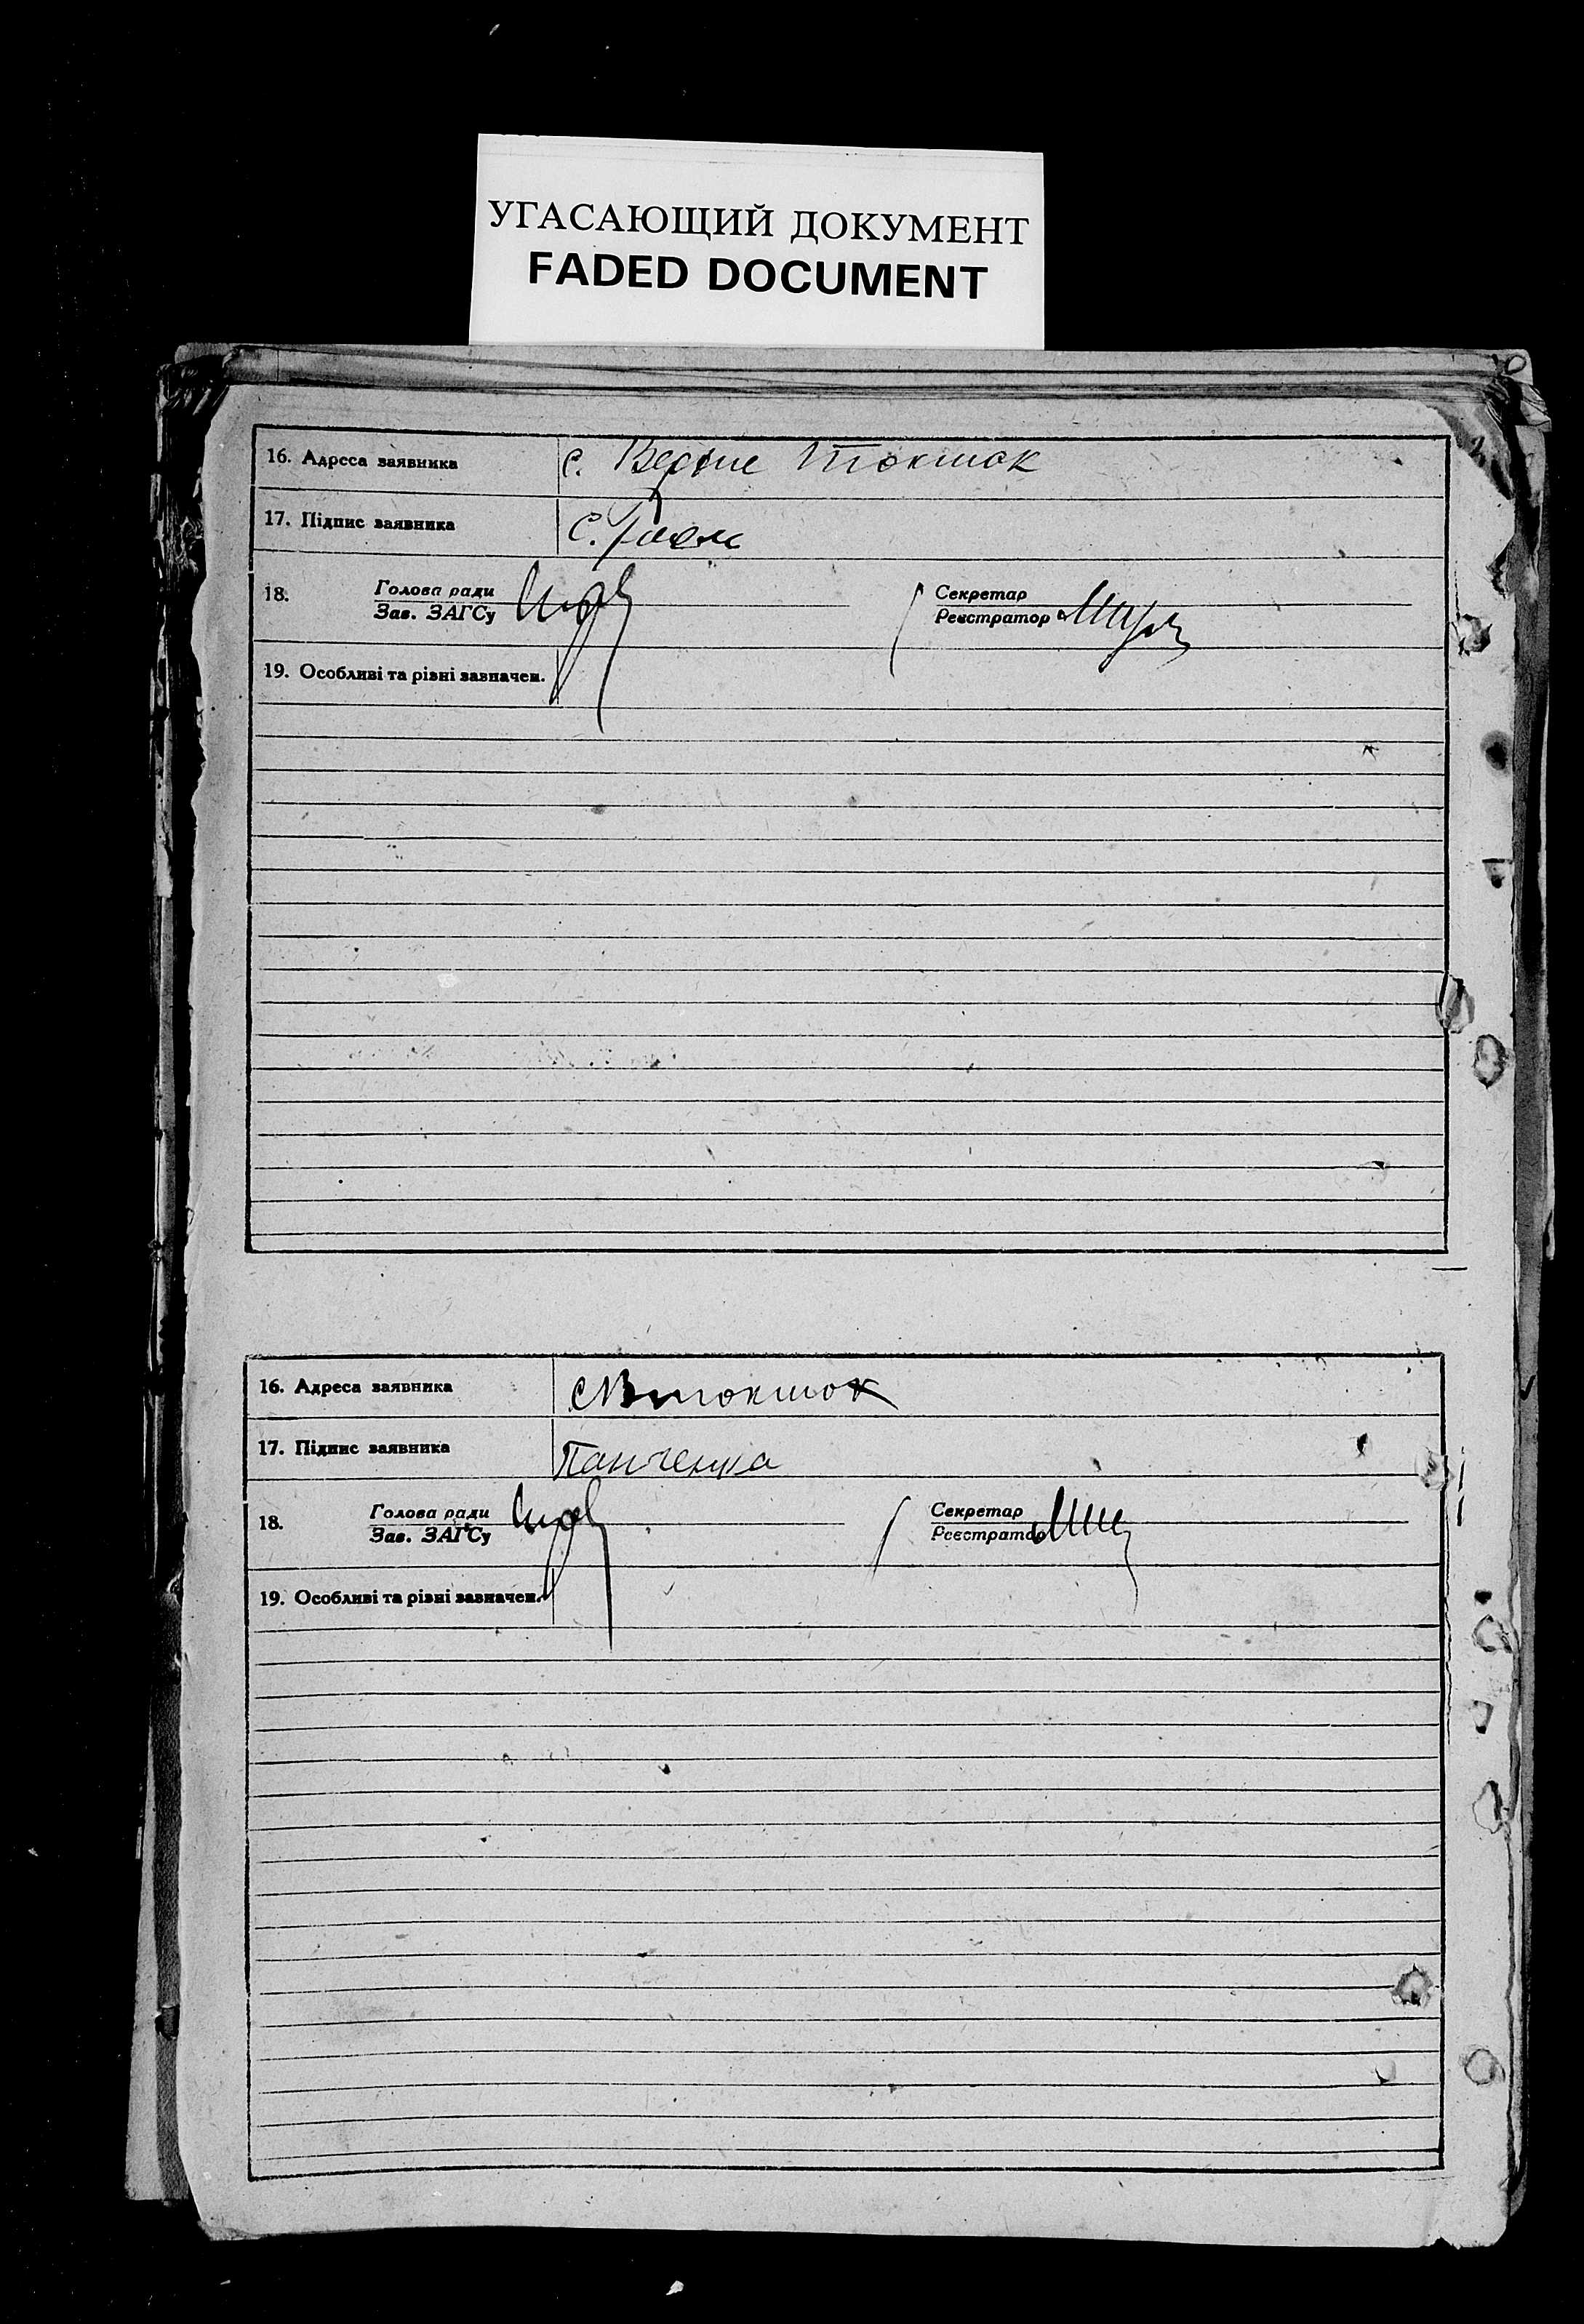 УГАСАЮЩИЙ ДОКУМЕНТ
FADED DOCUMENT
16. Адреса заявника с. Токмак
17. Підпис заявника С.
18. Голова ради Секретар
Зав. ЗАГСу Реєстратор
19. Особливі та різні зазначен.
16. Адреса заявника с В Токмак
17. Підпис заявника Панченка
18. Голова ради Секретар
Зав. ЗАГСу Реєстратор
19. Особливі та різні зазначен.